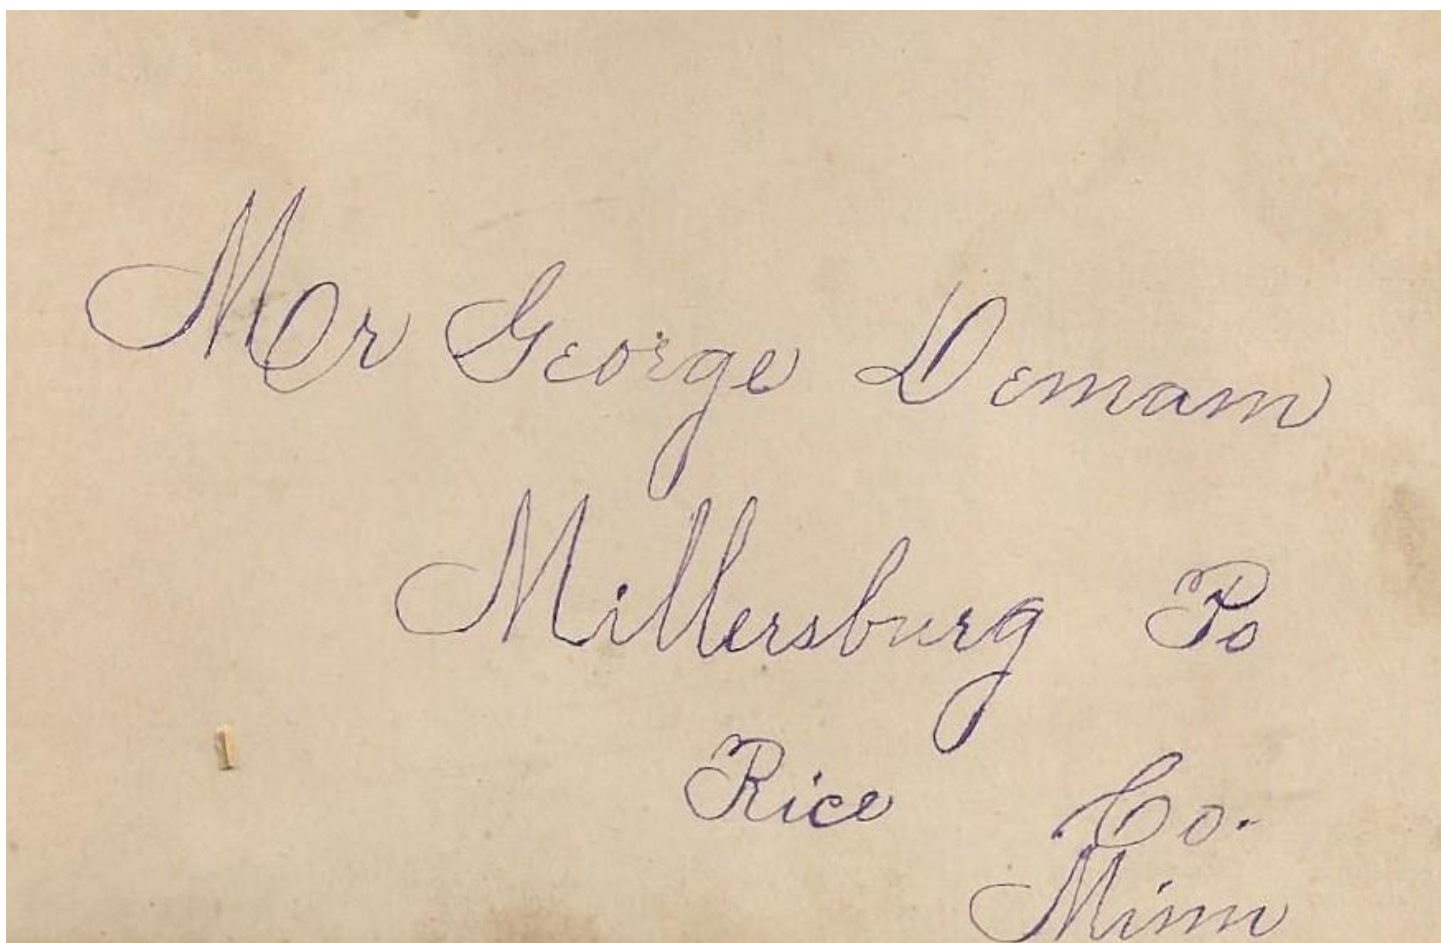 Mr George Demam
Millersburg Po
Rice Co.
Minn